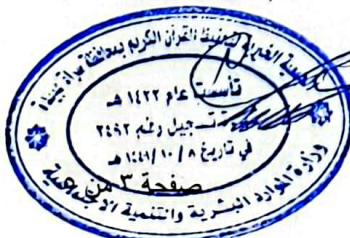 الجمعية الخيرية لتحفيظ القرآن الكريم بمحافظة
تأسست عام ١٤٢٢ هـ
تسجيل رقم ٢٤٩٢
في تاريخ ١٤٤١/١٠/٨ هـ
صفحة ٣ من
وزارة الموارد البشرية والتنمية الاجتماعية